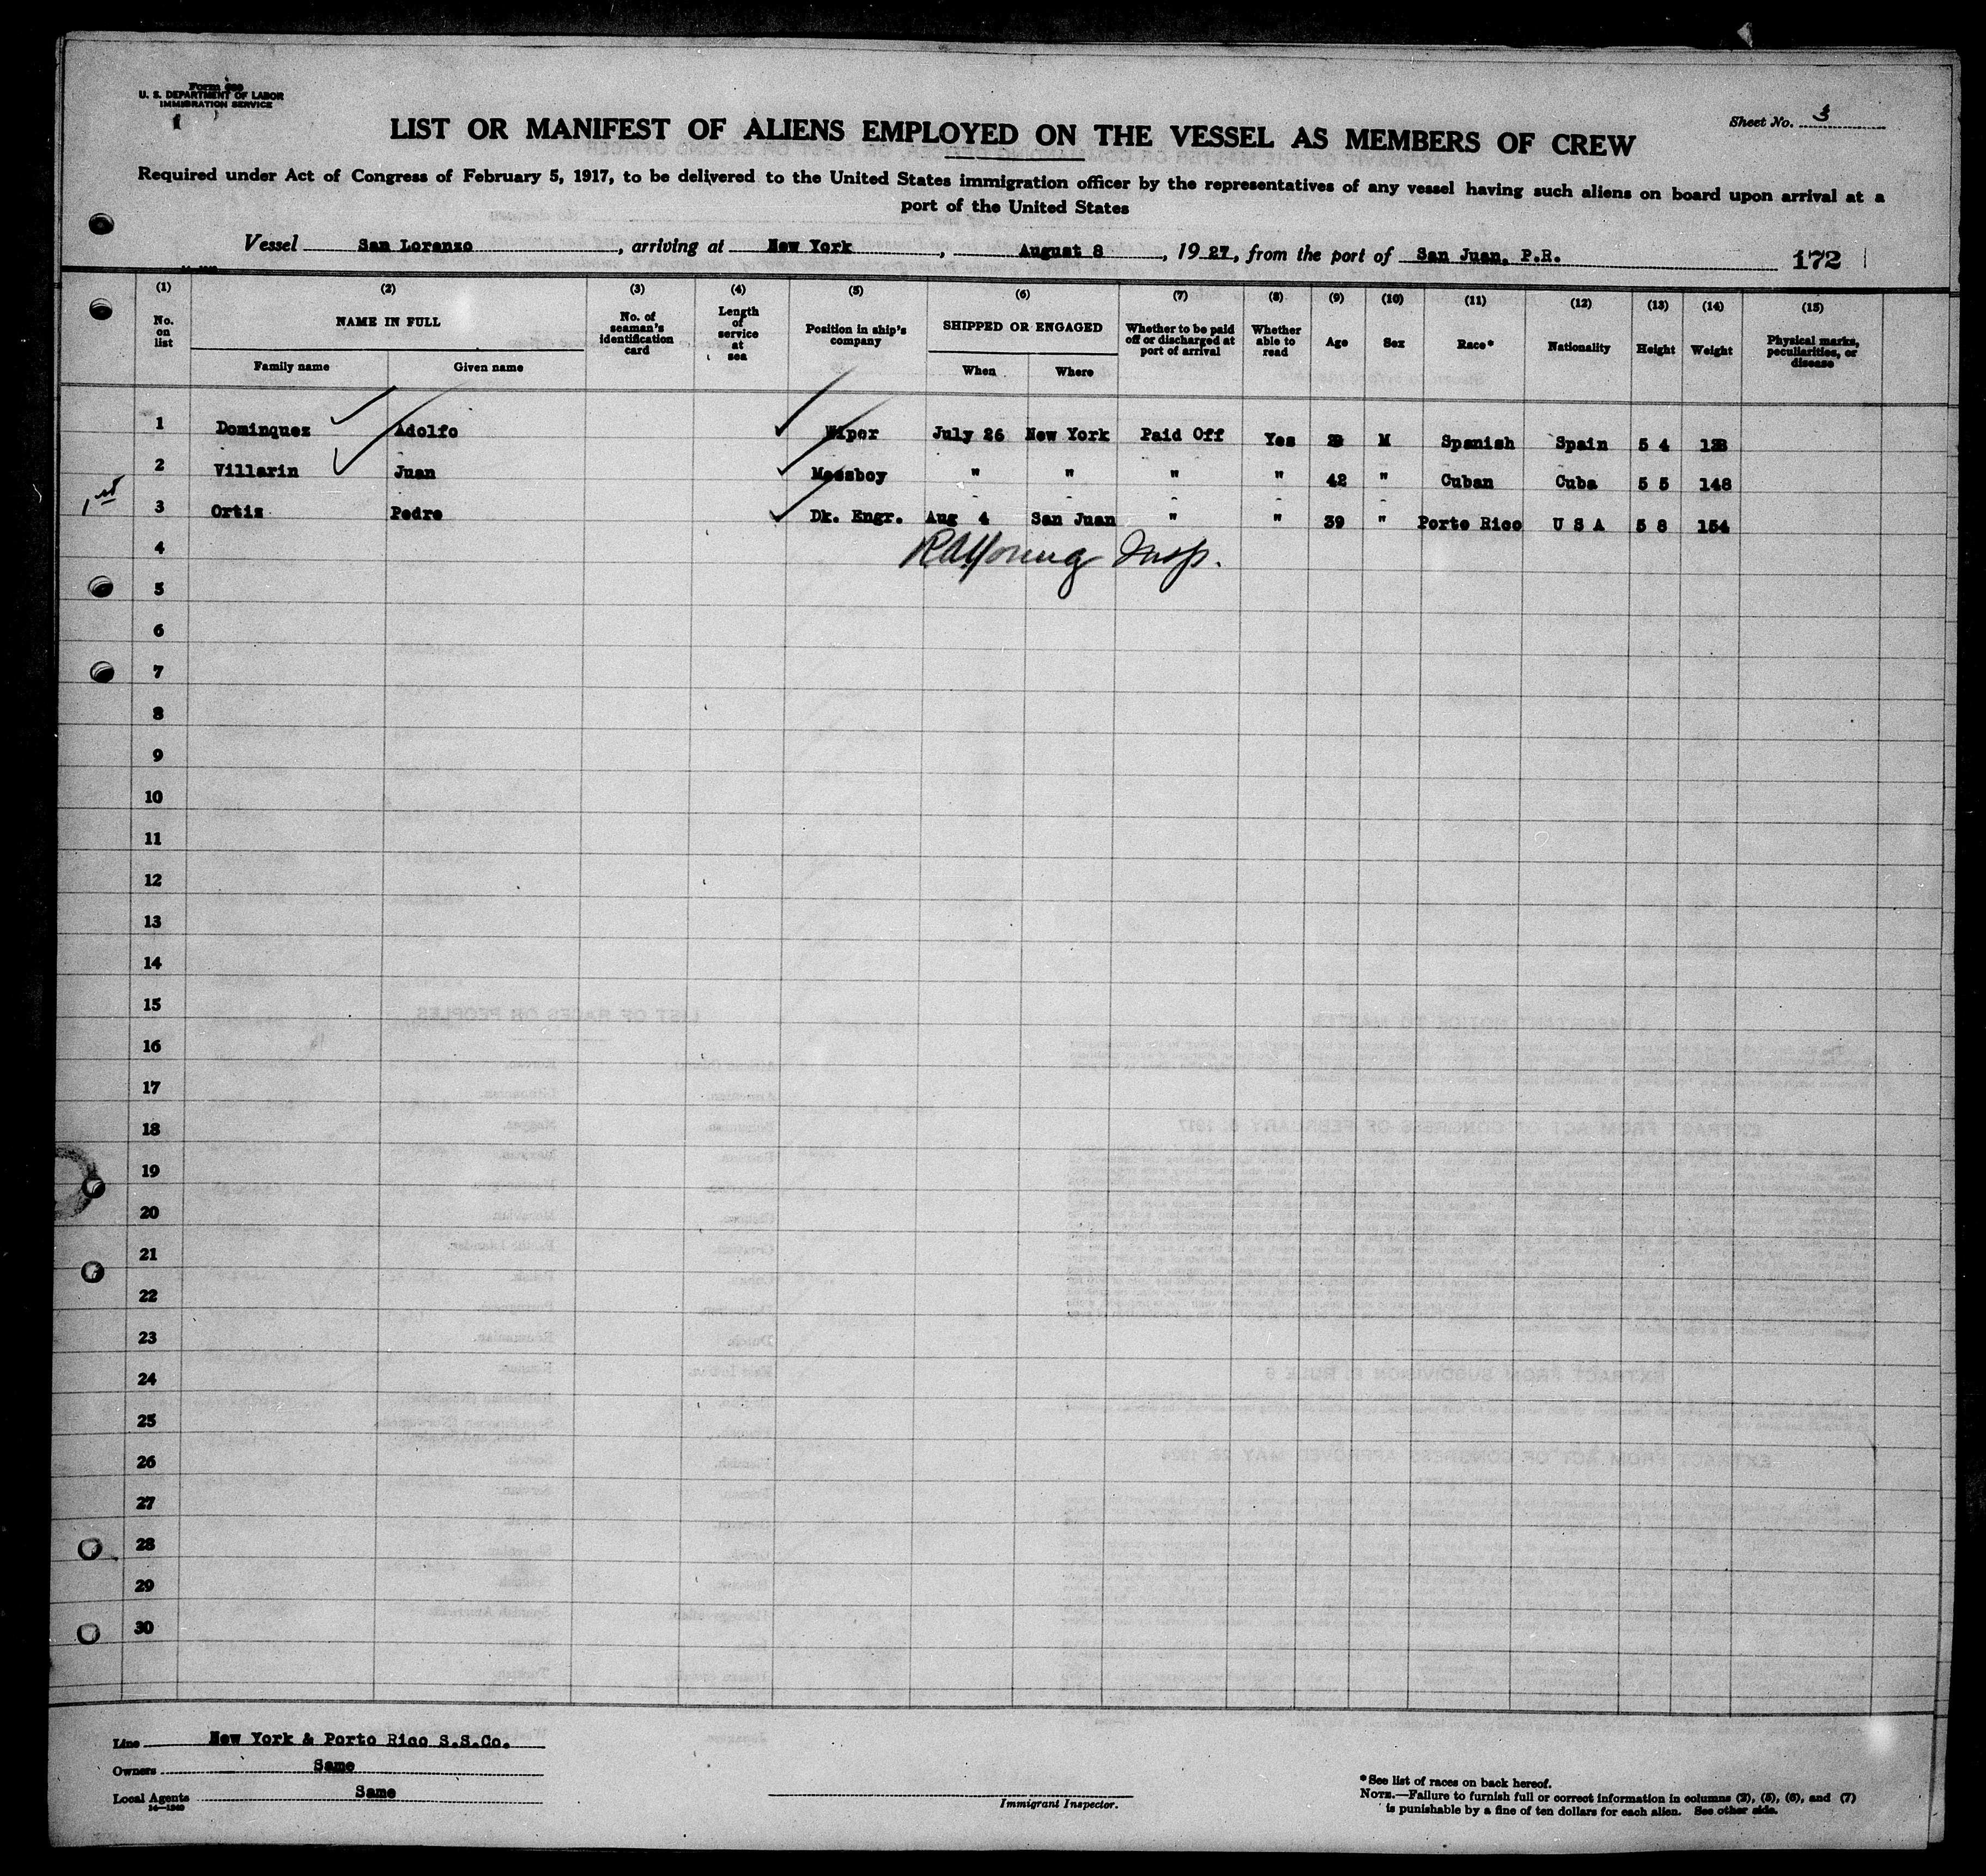 Form 680
U. S. DEPARTMENT OF LABOR
IMMIGRATION SERVICE
Sheet No. 3
LIST OR MANIFEST OF ALIENS EMPLOYED ON THE VESSEL AS MEMBERS OF CREW
Required under Act of Congress of February 5, 1917, to be delivered to the United States immigration officer by the representatives of any vessel having such aliens on board upon arrival at a
port of the United States
Vessel San Lorenzo, arriving at New York, August 8, 1927, from the port of San Juan, P.R. 172
(1) (2) (3) (4) (5) (6) (7) (8) (9) (10) (11) (12) (13) (14) (15)
No. on list NAME IN FULL Family name Given name No. of seaman's identification card Length of service at sea Position in ship's company SHIPPED OR ENGAGED When Where Whether to be paid off or discharged at port of arrival Whether able to read Age Sex Race* Nationality Height Weight Physical marks, peculiarities, or disease
1 Dominquez Adolfo Wiper July 26 New York Paid Off Yes M Spanish Spain 5 4
2 Villarin Juan Messboy " " " " 42 " Cuban Cuba 5 5 148
1st 3 Ortiz Pedro Dk. Engr. Aug 4 San Juan " " 39 " Porto Rico U S A 5 8 154
4 RAYoung Insp.
5
6
7
8
9
10
11
12
13
14
15
16
17
18
19
20
21
22
23
24
25
26
27
28
29
30
Line New York & Porto Rico S.S.Co.
Owners Same
Local Agents Same
14—1240
Immigrant Inspector.
*See list of races on back hereof.
NOTE.—Failure to furnish full or correct information in columns (2), (5), (6), and (7)
is punishable by a fine of ten dollars for each alien. See other side.